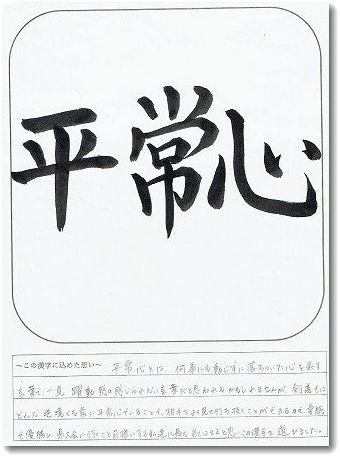 平常心
～この漢字に込めた思い～ 平常心とは、何事にも動じずに落ちついた心を表す
言葉で、一見 躍動感の感じられない言葉だと思われるかもしれませんが、剣道では
どんな逆境でも常に平常心でいることで、相手をよく見て打ち抜くことができるので、
で優勝し県大会に行くことを目標にする私達に最も はまると思いこの漢字を選びました。